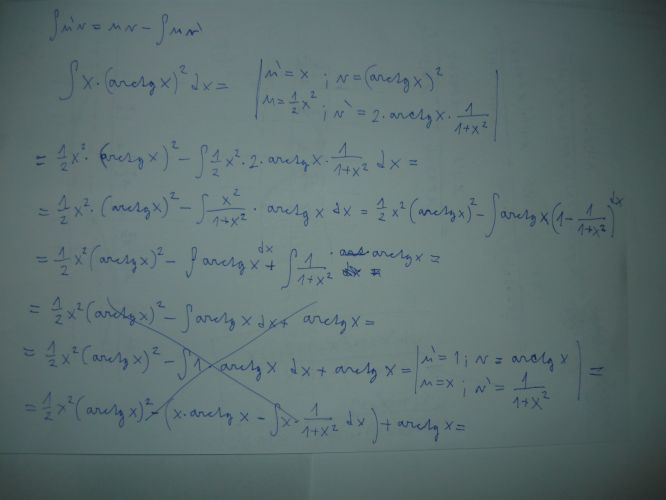 ∫u'v = uv - ∫uv'
∫x·(arctg x)² dx = | u' = x ; v = (arctg x)²
u = 1/2 x² ; v' = 2·arctg x · 1/(1+x²) |
= 1/2 x² · (arctg x)² - ∫ 1/2 x² · 2 · arctg x · 1/(1+x²) dx =
= 1/2 x² · (arctg x)² - ∫ x²/(1+x²) · arctg x dx = 1/2 x² (arctg x)² - ∫ arctg x (1 - 1/(1+x²)) dx
= 1/2 x² (arctg x)² - ∫ arctg x dx + ∫ 1/(1+x²) · arctg x =
= 1/2 x² (arctg x)² - ∫ arctg x dx + arctg x =
= 1/2 x² (arctg x)² - ∫ 1 · arctg x dx + arctg x = | u' = 1 ; v = arctg x
u = x ; v' = 1/(1+x²) | =
= 1/2 x² (arctg x)² - (x·arctg x - ∫ x · 1/(1+x²) dx) + arctg x =